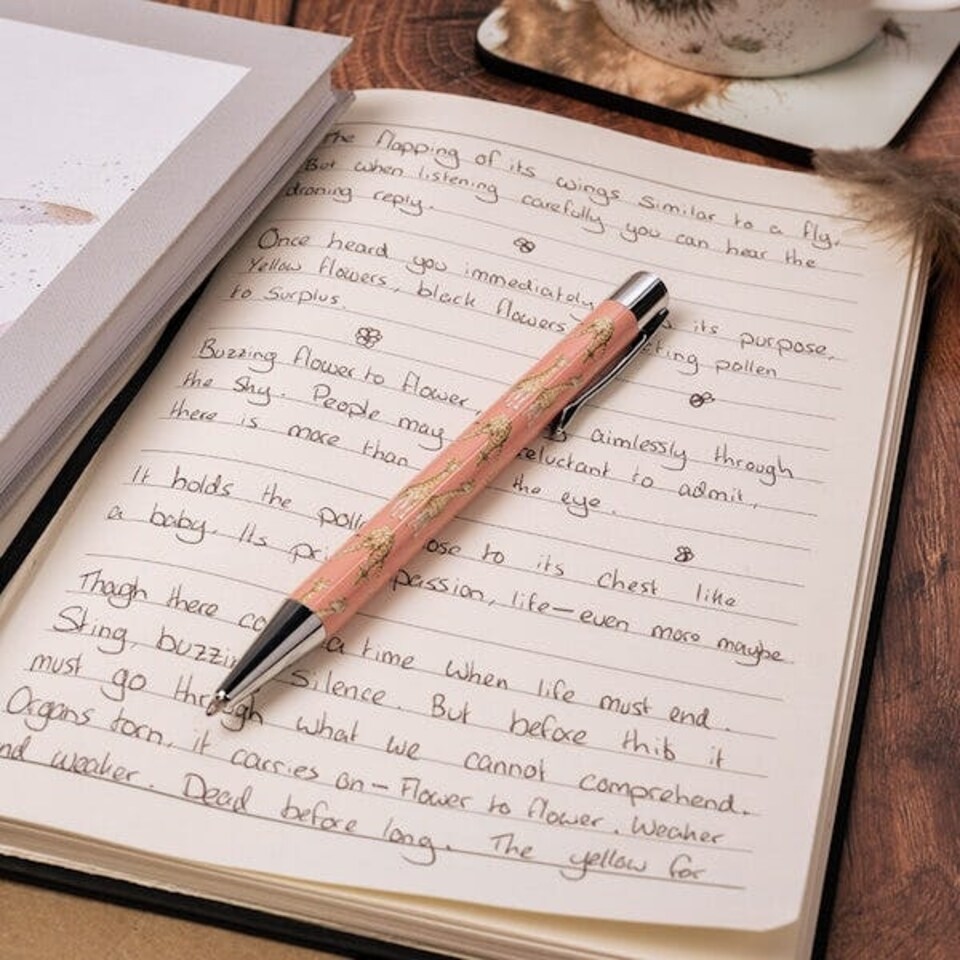 the flapping of its wings similar to a fly.
But when listening carefully you can hear the
droning reply.
Once heard you immediately its purpose,
Yellow flowers, black flowers pollen
to surplus.
Buzzing flower to flower, aimlessly through
the sky. People may reluctant to admit,
there is more than the eye.
It holds the to its chest like
a baby. Its passion, life—even more maybe
Though there a time when life must end.
Sting, silence. But before this it
must go through what we cannot comprehend.
Organs torn, it carries on - Flower to flower. Weaker
and weaker. Dead before long. The yellow for